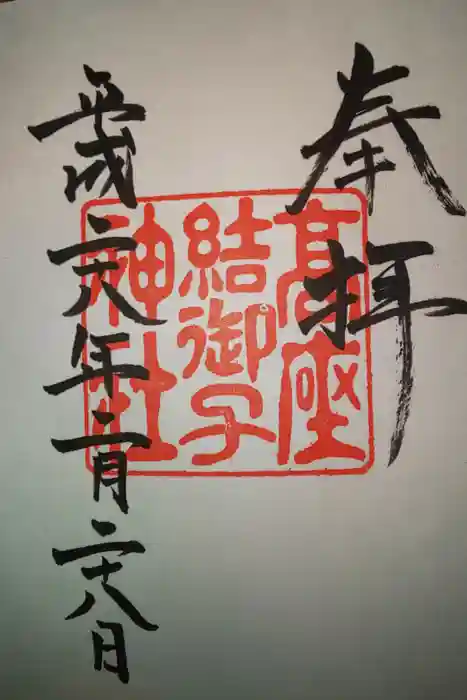 奉拝
髙座
結御子
神社
平成二十八年二月二十八日